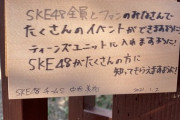 SKE48 全員とファンのみなさんで
たくさんのイベントができますように
ティーンズユニット入れますように!
SKE48がたくさんの方に
知ってもらえますように!
SKE48 チーム
2021.1.2